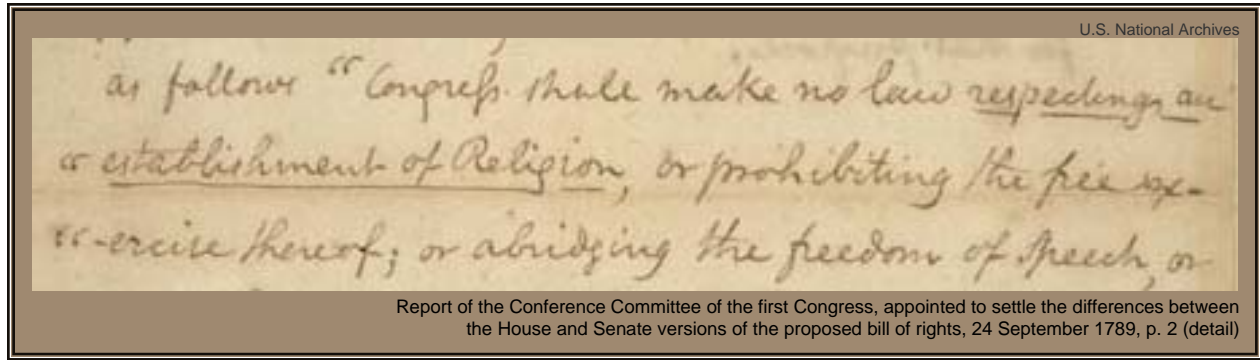 U.S. National Archives
as follows “ Congress shall make no law respecting an
“ establishment of Religion, or prohibiting the free ex-
“-ercise thereof; or abridging the freedom of speech, or
Report of the Conference Committee of the first Congress, appointed to settle the differences between
the House and Senate versions of the proposed bill of rights, 24 September 1789, p. 2 (detail)